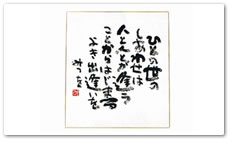 ひとの世の
しあわせは
人と人とが逢う
ことからはじまる
よき出逢いを
みつを